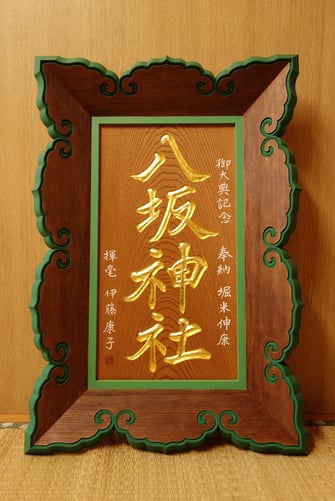 御大典記念 奉納 堀米伸康
八坂神社
揮毫 伊藤康子